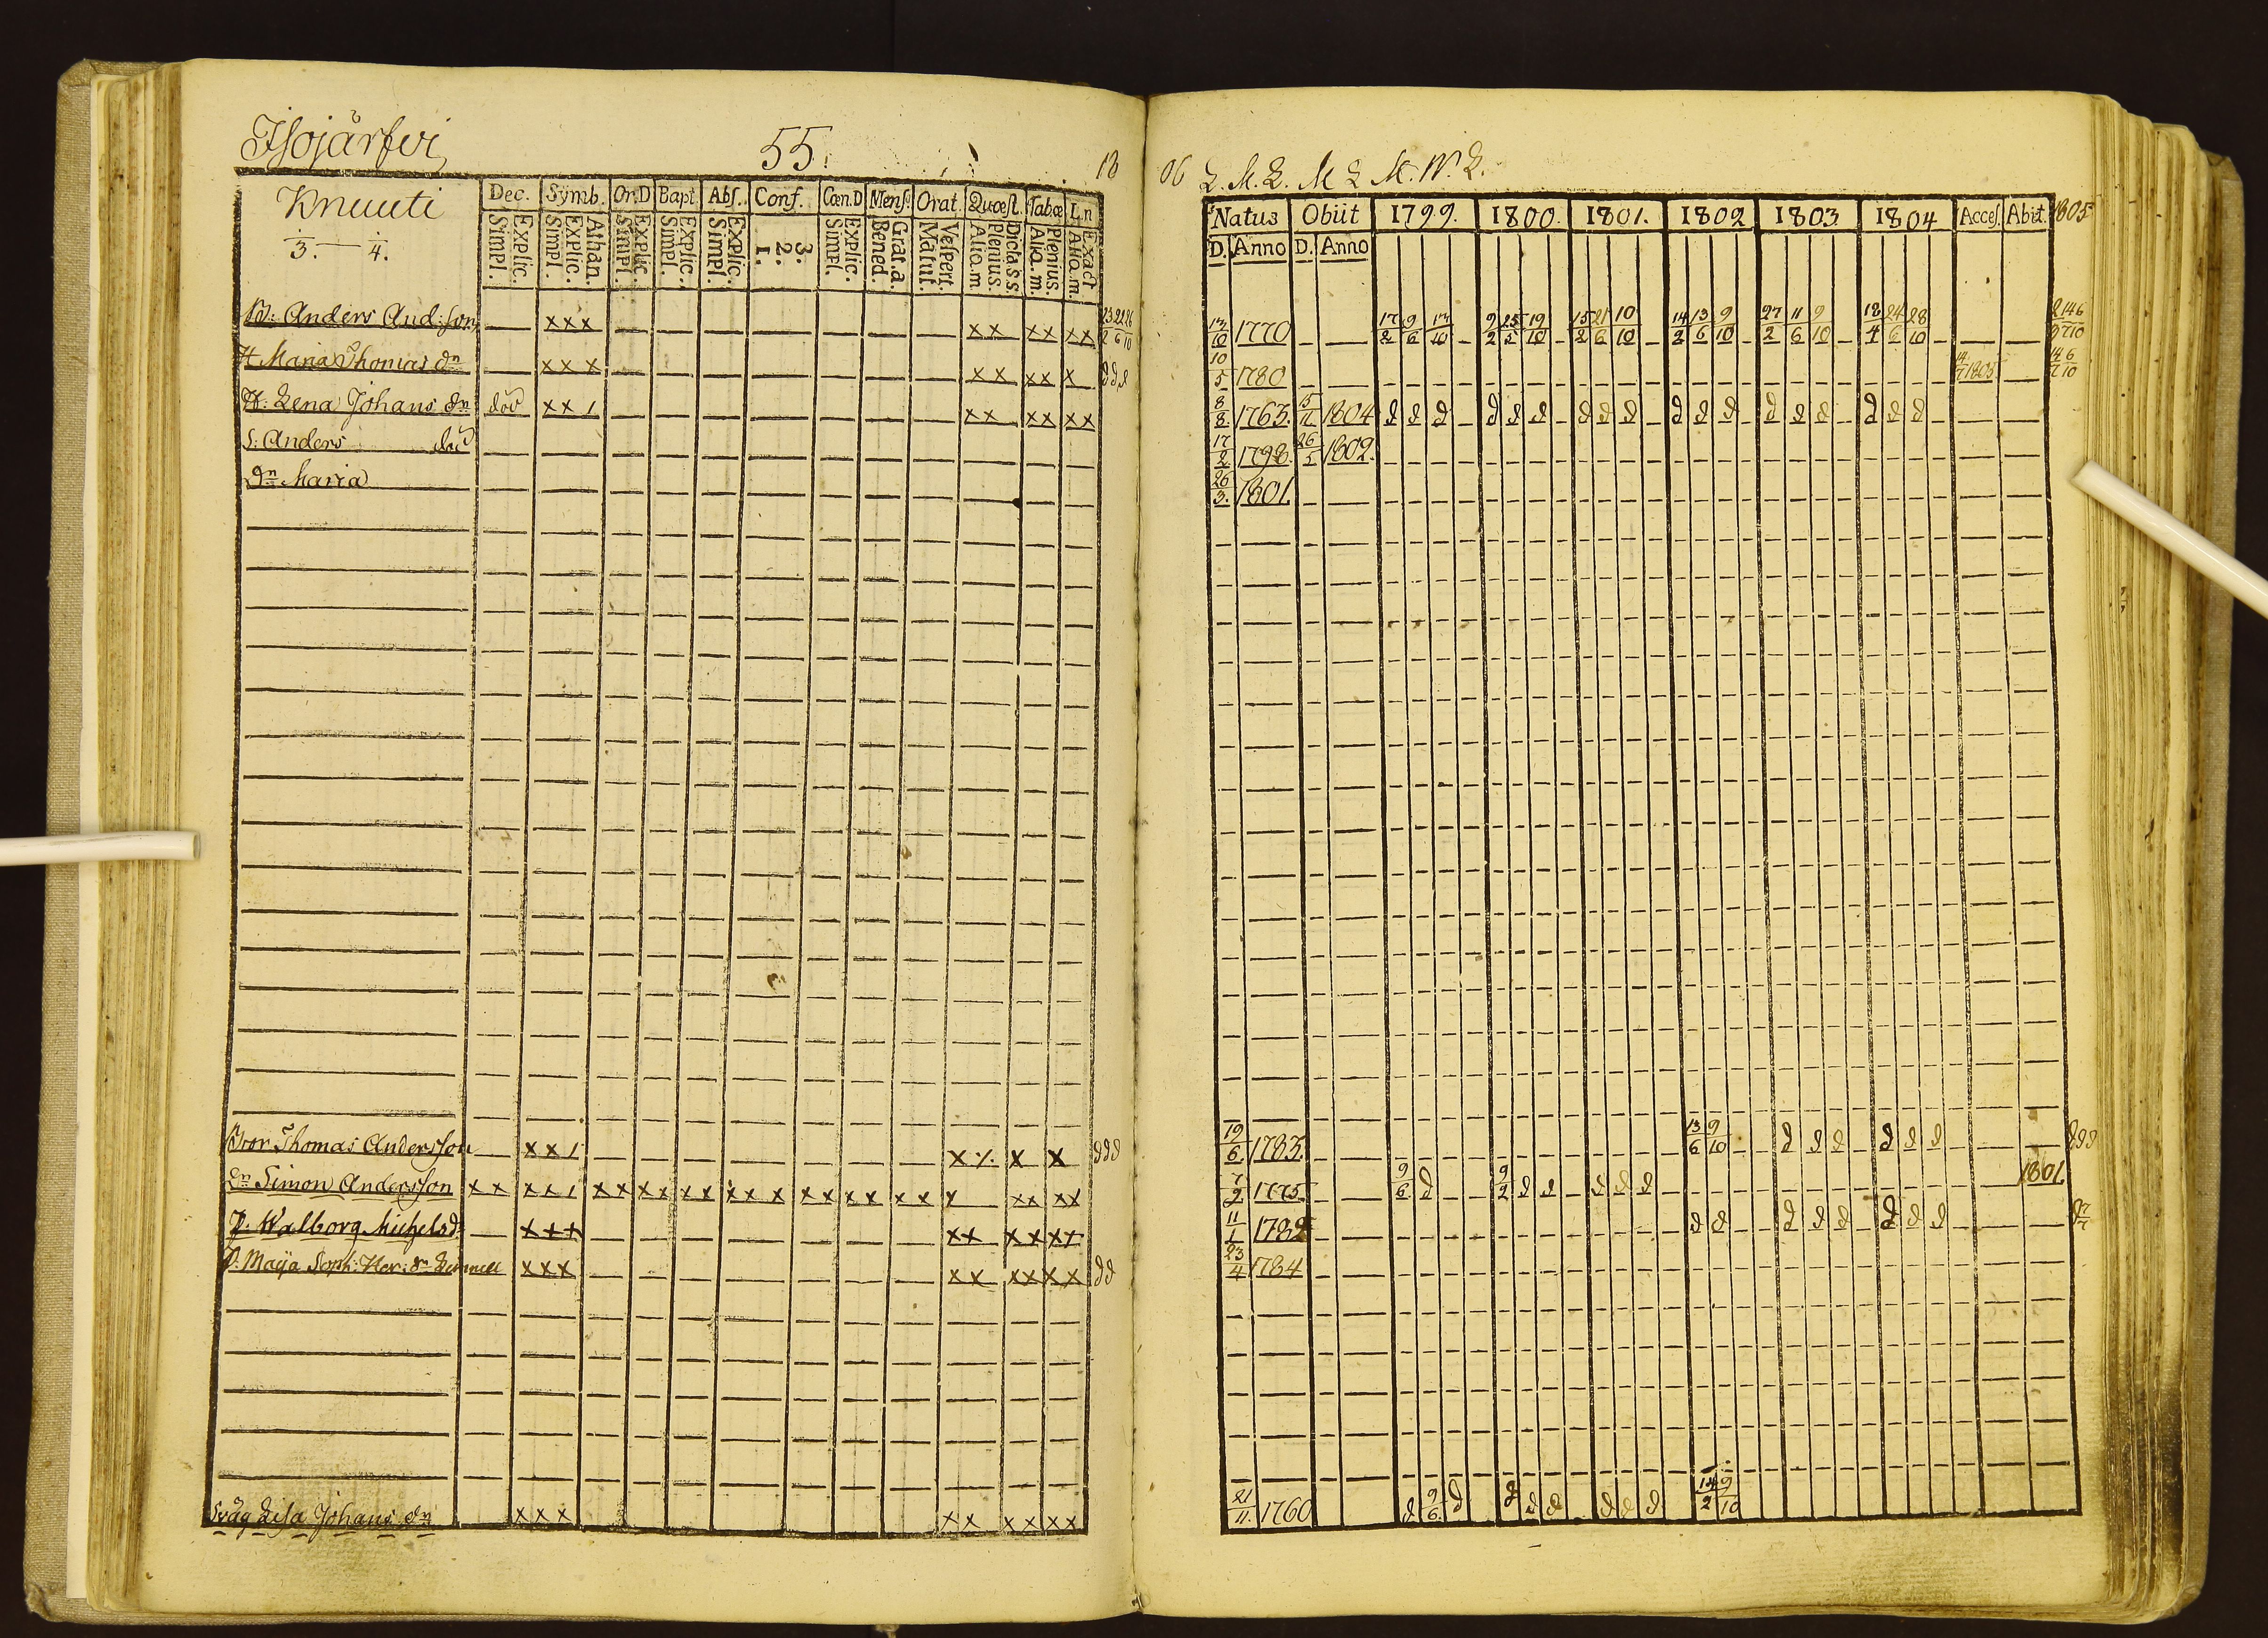 Isojärfvi 55.
18
Knuuti
3. — 4.
Dec. Symb. Or.D Bapt. Abs. Conf. Cœn.D Mens. Orat. Quæst. Tabæ L.n
Simpl. Explic. Simpl. Explic. Athan. Simpl. Explic. Simpl. Explic. Simpl. Explic. 1. 2. 3. Simpl. Explic. Bened. Grat.a. Matut. Vespert. Aliq.m plenius. Dicta S.S. Aliq.m. Plenius. Aliq.m. Exact
B: Anders And:son xxx xx xx xx 23/2 22/6 26/10
H Maria Thomas dr xxx xx xx x d d d
H: Lena Johans dr död xx/ xx xx xx
S: Anders död
Dr Maria
Bror Thomas Andersson xx/ x ./. x x d d d
Dr Simon Andersson xx xx/ xx xx xx xx x xx xx xx x xx xx
P. Walborg Michelsdr xxx xx xx xx
P. Maja Soph: Her: dr xxx xx xx xx d d
Sväg Lisa Johans dr xxx xx xx xx
06 L. M. L. M L M. W. L.
Natus Obiit 1799. 1800. 1801. 1802 1803. 1804 Acces. Abit. 1805
D. Anno D. Anno
13/10 1770 17/2 9/6 13/10 9/2 25/5 19/10 15/2 21/6 10/10 14/2 13/6 9/10 27/2 11/6 9/10 18/4 24/6 28/10
10/5 1780 14/7 1805 14/7 6/10
8/8 1763. 15/11 1804 d d d d d d d d d d d d d d d d d d
17/2 1798. 26/5 1802.
26/3. 1801.
19/6. 1783. 13/6 9/10 d d d d d d d d d
7/2 1775. 9/6 d 9/2 d d d d d 1801.
11/1 1782 d d d d d d d d
23/4 1784
21/11. 1760 d 9/6 d d d d d d d 14/2 9/10